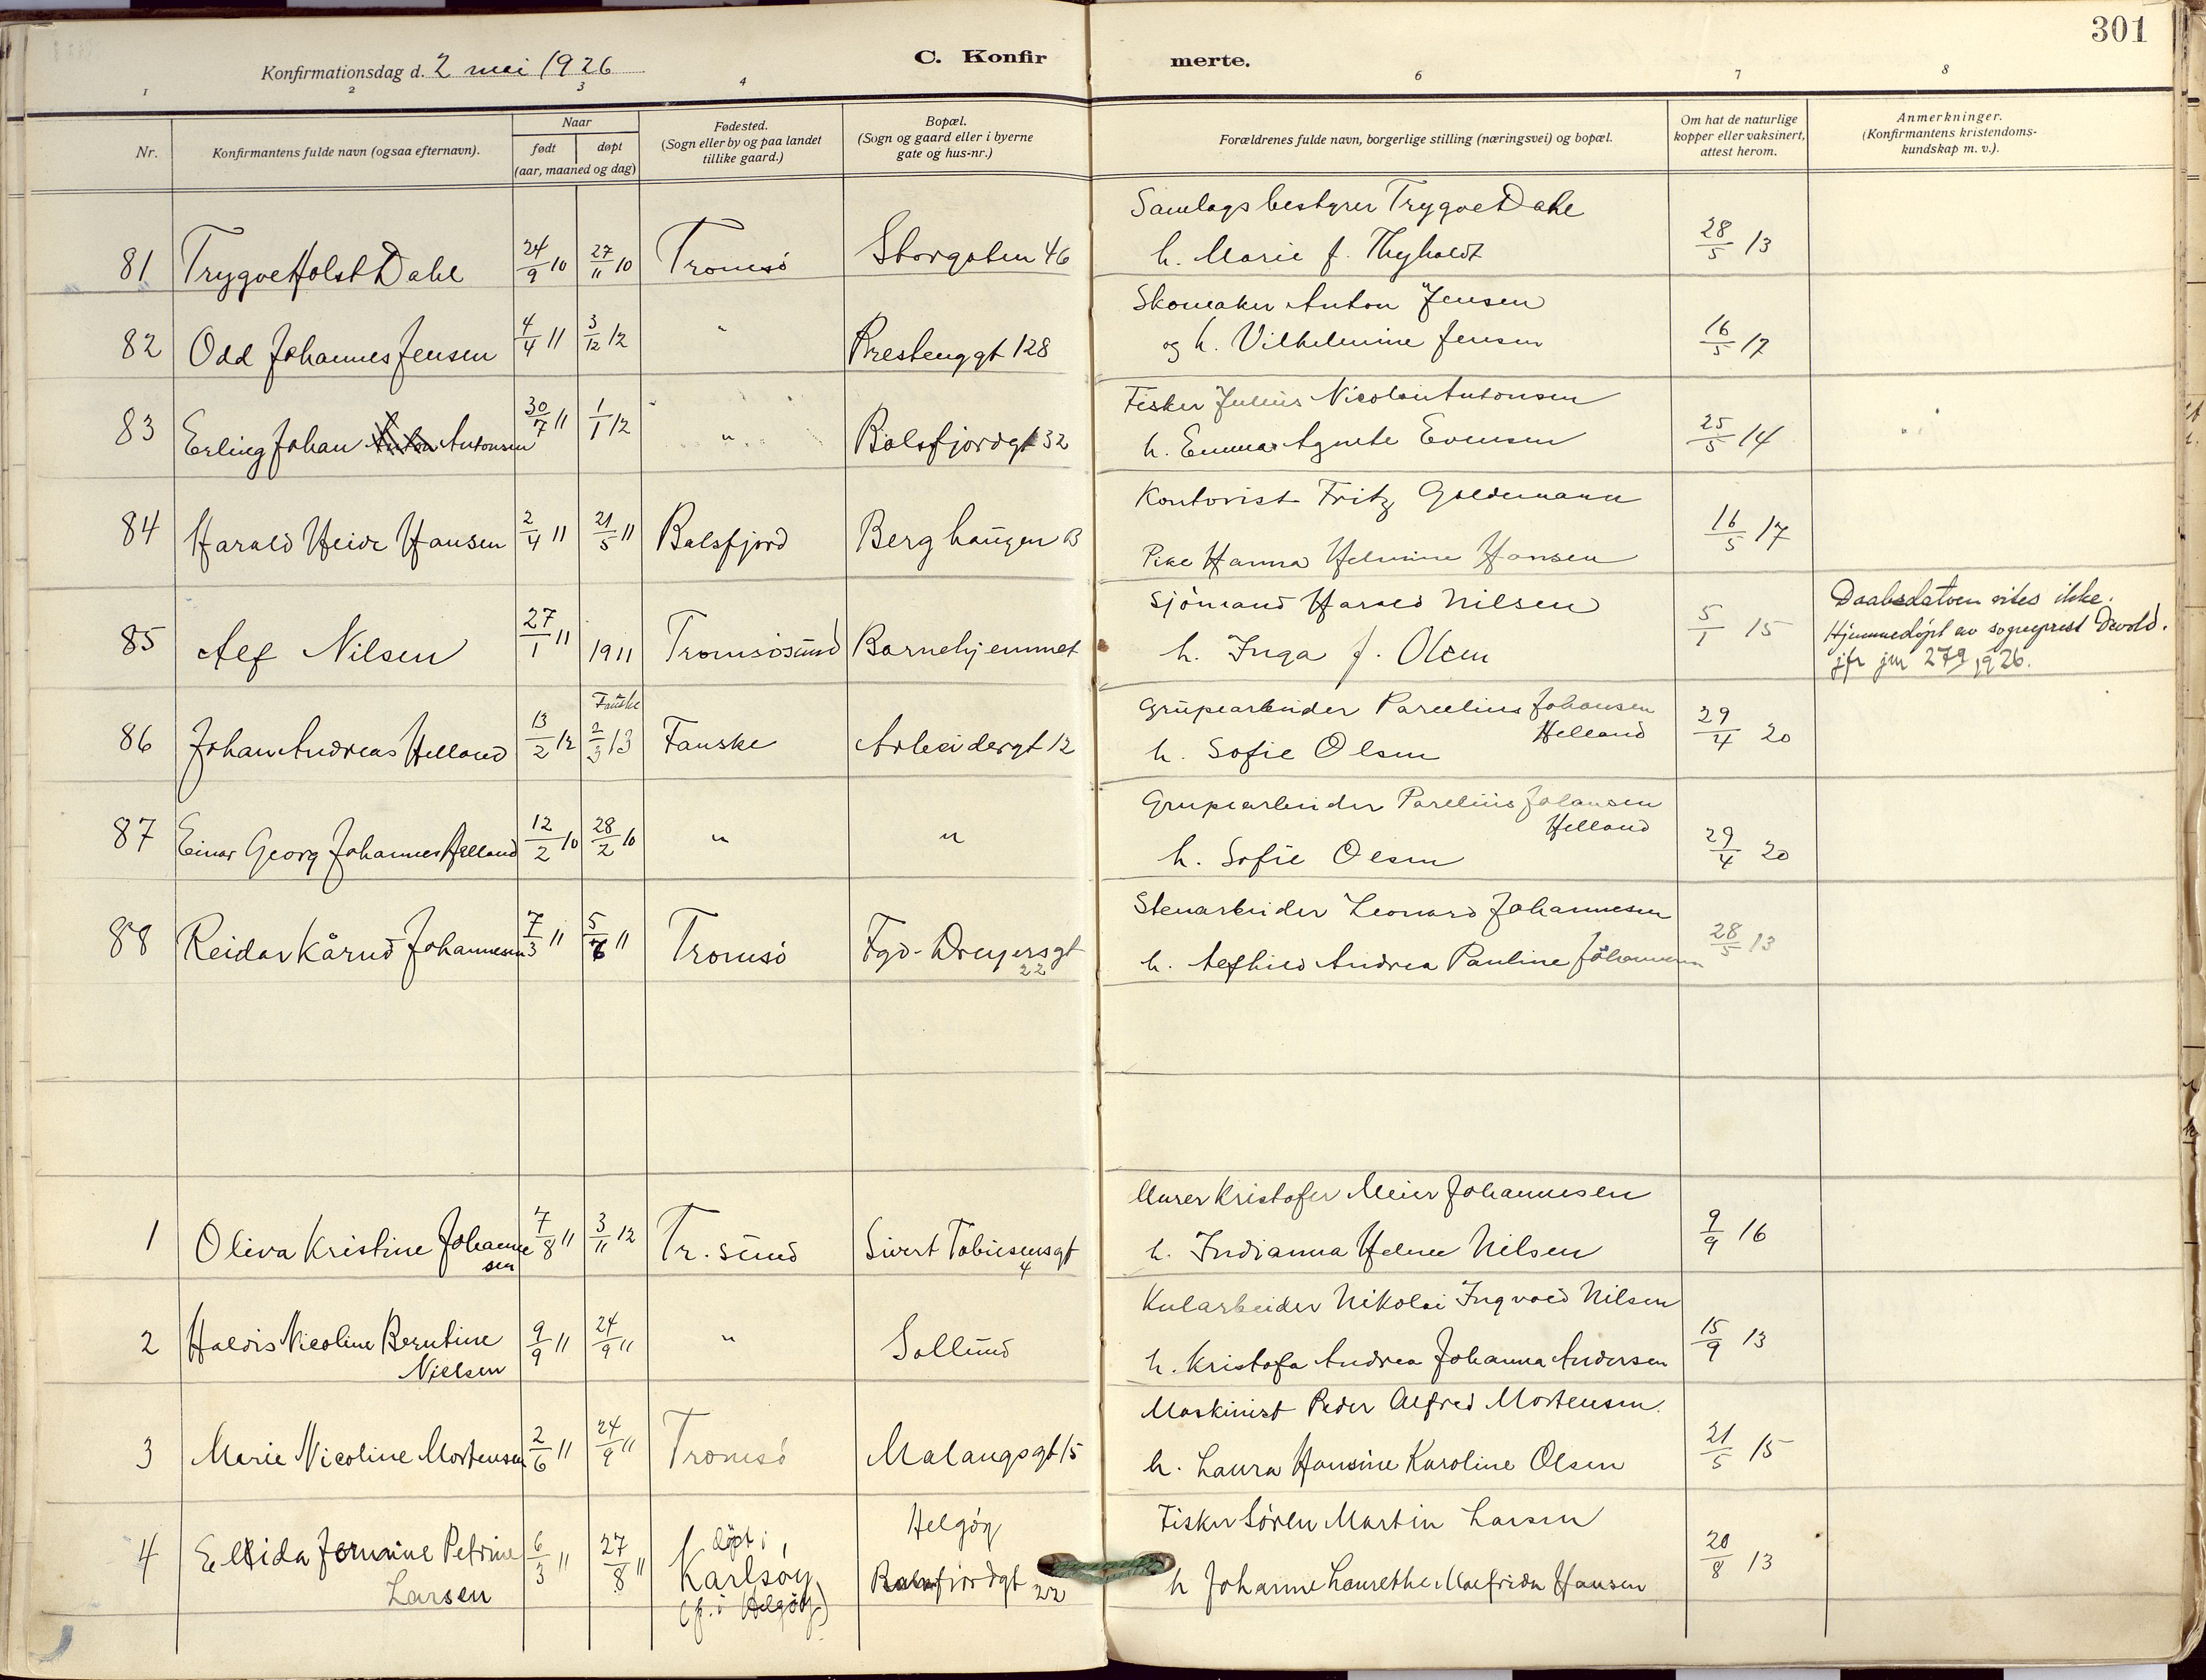 301
Konfirmationsdag d. 2 mai 1926
C. Konfir merte.
1 2 3 4 6 7 8
Nr.
Konfirmantens fulde navn (ogsaa efternavn).
Naar
født døpt
(aar, maaned og dag)
Fødested.
(Sogn eller by og paa landet
tillike gaard.)
Bopæl.
(Sogn og gaard eller i byerne
gate og hus-nr.)
Forældrenes fulde navn, borgerlige stilling (næringsvei) og bopæl.
Om hat de naturlige
kopper eller vaksinert,
attest herom.
Anmerkninger.
(Konfirmantens kristendoms-
kundskap m. v.).
Samlagsbestyrer Trygve Dahl
81 Trygve Holst Dahl 24/9 10 27/11 10 Tromsö Storgaten 46 h. Marie f. Thyholdt 28/5 13
Skomaker Anton Jensen
82 Odd Johannes Jensen 4/4 11 3/12 12 " Prestenggt 128 og h. Vilhelmine Jensen 16/5 17
Fisker Julius Nicolai Antonsen
83 Erling Johan Antonsen 30/7 11 1/1 12 " Balsfjordgt 32 h. Emma Agnete Evensen 25/5 14
Kontorist Fritz Goldemann
84 Harald Heide Hansen 2/4 11 21/5 11 Balsfjord Berghaugen B Pike Hanna Helmine Hansen 16/5 17
Sjömand Harald Nilsen
85 Alf Nilsen 27/1 11 1911 Tromsösund Barnehjemmet h. Inga f. Olsen 5/1 15
Daabsdatoen vites ikke.
Hjemmedøpt av sogneprest Devold.
jfr jnr 279 1926.
Fauske
Grubearbeider Parelius Johansen
Helland
86 Johan Andreas Helland 13/2 12 2/3 13 Fauske Arbeidergt 12 h. Sofie Olsen 29/4 20
Grubearbeider Parelius Johansen
Helland
87 Einar Georg Johannes Helland 12/2 10 28/2 10 " " h. Sofie Olsen 29/4 20
Stenarbeider Leonard Johannesen
88 Reidar Kårud Johannesen 7/3 11 5/6 11 Tromsö Fgd. Dreyersgt
22
h. Alfhild Andrea Pauline Johannesen 28/5 13
Murer Kristofer Meier Johannesen
1 Oliva Kristine Johanne
sen
7/8 11 3/11 12 Tr. sund Sivert Tobiesensgt
4
h. Indianna Helene Nilsen 9/9 16
Kularbeider Nikolai Ingvald Nilsen
2 Haldis Nicoline Berntine
Nielsen
9/9 11 24/9 11 " Sollund h. Kristofa Andrea Johanna Andersen 15/9 13
Maskinist Peder Alfred Mortensen.
3 Marie Nicoline Mortensen 2/6 11 24/9 11 Tromsö Malangsgt 15 h. Laura Hansine Karoline Olsen 21/5 15
Fisker Sören Martin Larsen
4 Ellida Jermine Petrine
Larsen
6/3 11 27/8 11 döpt i
Karlsöy
(f. i Helgöy)
Helgöy
Balsfjordgt 22
h Johanne Laurethe Malfrida Hansen 20/8 13